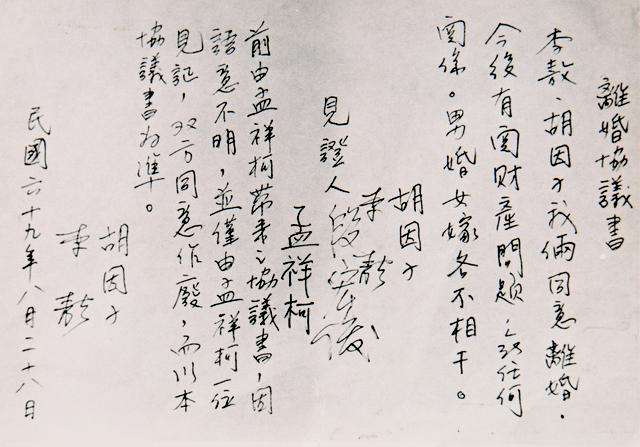 離婚協議書
李敖、胡因子我倆同意離婚。
今後有関財產問題，無任何
関係。男婚女嫁各不相干。
胡因子
李敖
見證人 段宏俊
孟祥柯
前由孟祥柯帶來之協議書，因
語意不明，並僅由孟祥柯一位
見証，双方同意作廢，而以本
協議書為準。
胡因子
李敖
民國六十九年八月二十八日